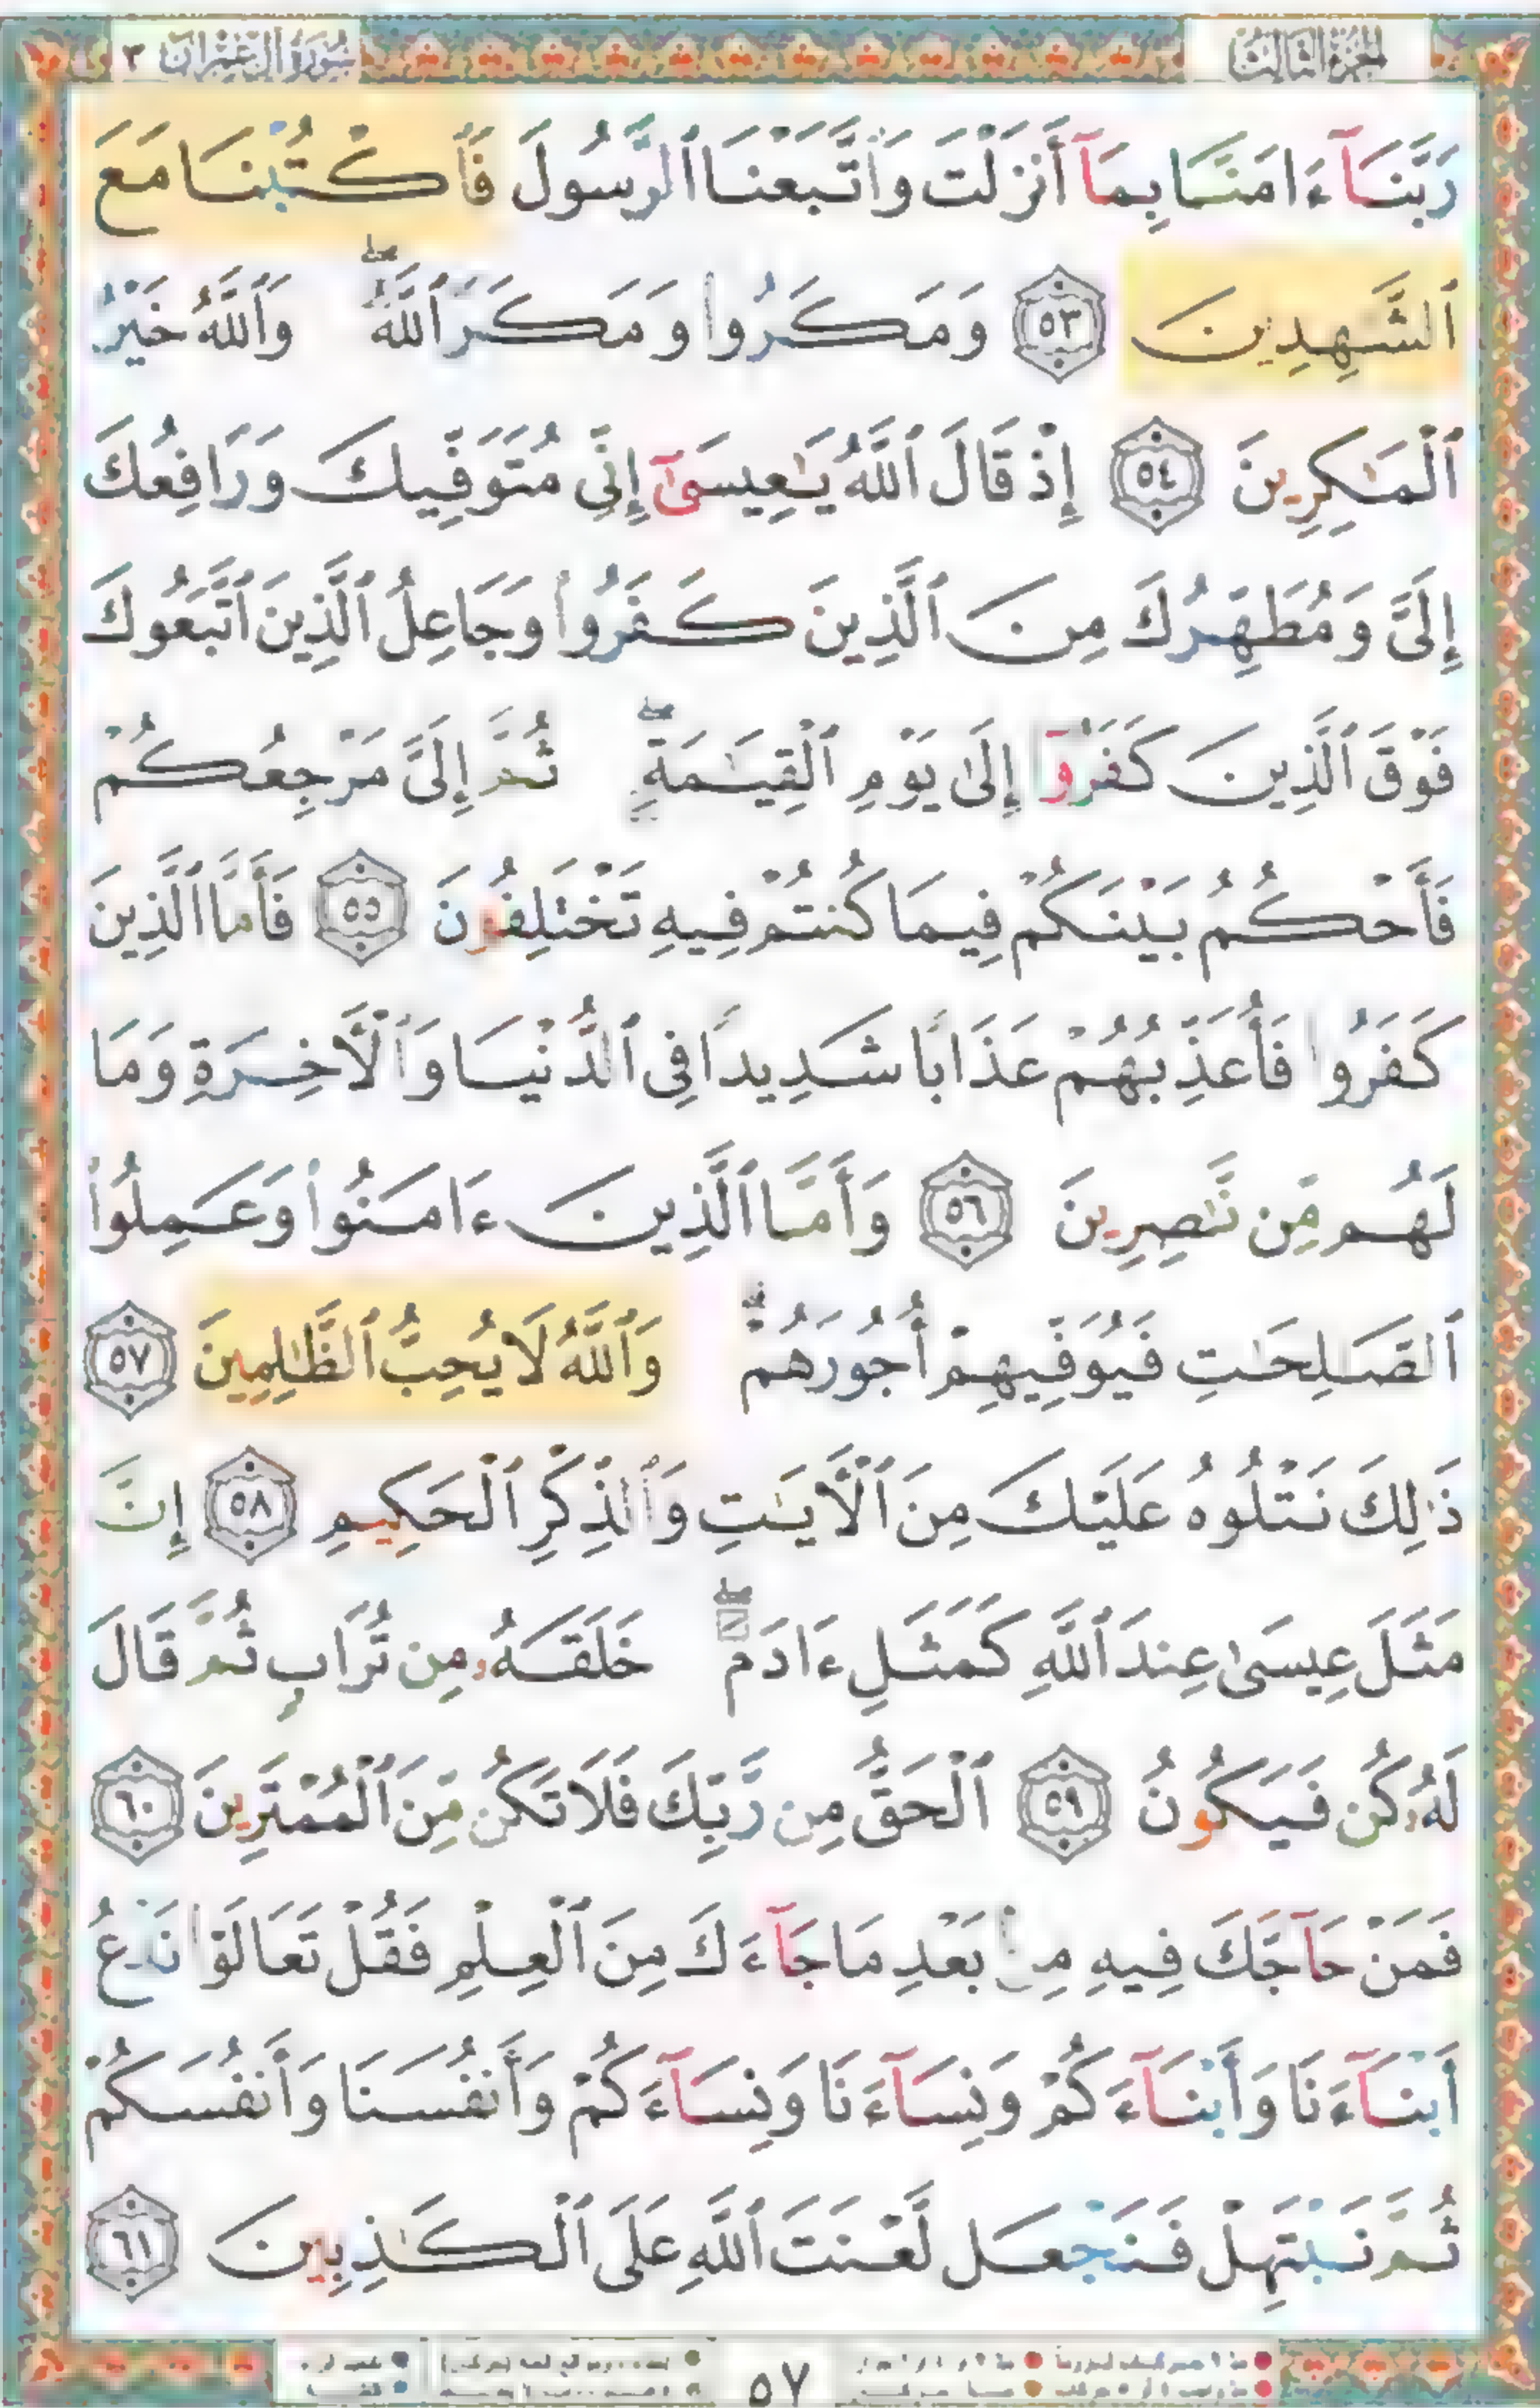 سُورَةُ آلِ عِمْرَانَ ٣
الجُزءُ الثَّالِثُ
رَبَّنَآ ءَامَنَّا بِمَآ أَنزَلْتَ وَٱتَّبَعْنَا ٱلرَّسُولَ فَٱكْتُبْنَا مَعَ
ٱلشَّٰهِدِينَ ٥٣ وَمَكَرُوا۟ وَمَكَرَ ٱللَّهُ ۖ وَٱللَّهُ خَيْرُ
ٱلْمَٰكِرِينَ ٥٤ إِذْ قَالَ ٱللَّهُ يَٰعِيسَىٰٓ إِنِّى مُتَوَفِّيكَ وَرَافِعُكَ
إِلَىَّ وَمُطَهِّرُكَ مِنَ ٱلَّذِينَ كَفَرُوا۟ وَجَاعِلُ ٱلَّذِينَ ٱتَّبَعُوكَ
فَوْقَ ٱلَّذِينَ كَفَرُوٓا۟ إِلَىٰ يَوْمِ ٱلْقِيَٰمَةِ ۖ ثُمَّ إِلَىَّ مَرْجِعُكُمْ
فَأَحْكُمُ بَيْنَكُمْ فِيمَا كُنتُمْ فِيهِ تَخْتَلِفُونَ ٥٥ فَأَمَّا ٱلَّذِينَ
كَفَرُوا۟ فَأُعَذِّبُهُمْ عَذَابًا شَدِيدًا فِى ٱلدُّنْيَا وَٱلْءَاخِرَةِ وَمَا
لَهُم مِّن نَّٰصِرِينَ ٥٦ وَأَمَّا ٱلَّذِينَ ءَامَنُوا۟ وَعَمِلُوا۟
ٱلصَّٰلِحَٰتِ فَيُوَفِّيهِمْ أُجُورَهُمْ ۗ وَٱللَّهُ لَا يُحِبُّ ٱلظَّٰلِمِينَ ٥٧
ذَٰلِكَ نَتْلُوهُ عَلَيْكَ مِنَ ٱلْءَايَٰتِ وَٱلذِّكْرِ ٱلْحَكِيمِ ٥٨ إِنَّ
مَثَلَ عِيسَىٰ عِندَ ٱللَّهِ كَمَثَلِ ءَادَمَ ۖ خَلَقَهُۥ مِن تُرَابٍ ثُمَّ قَالَ
لَهُۥ كُن فَيَكُونُ ٥٩ ٱلْحَقُّ مِن رَّبِّكَ فَلَا تَكُن مِّنَ ٱلْمُمْتَرِينَ ٦٠
فَمَنْ حَآجَّكَ فِيهِ مِنۢ بَعْدِ مَا جَآءَكَ مِنَ ٱلْعِلْمِ فَقُلْ تَعَالَوْا۟ نَدْعُ
أَبْنَآءَنَا وَأَبْنَآءَكُمْ وَنِسَآءَنَا وَنِسَآءَكُمْ وَأَنفُسَنَا وَأَنفُسَكُمْ
ثُمَّ نَبْتَهِلْ فَنَجْعَل لَّعْنَتَ ٱللَّهِ عَلَى ٱلْكَٰذِبِينَ ٦١
٥٧